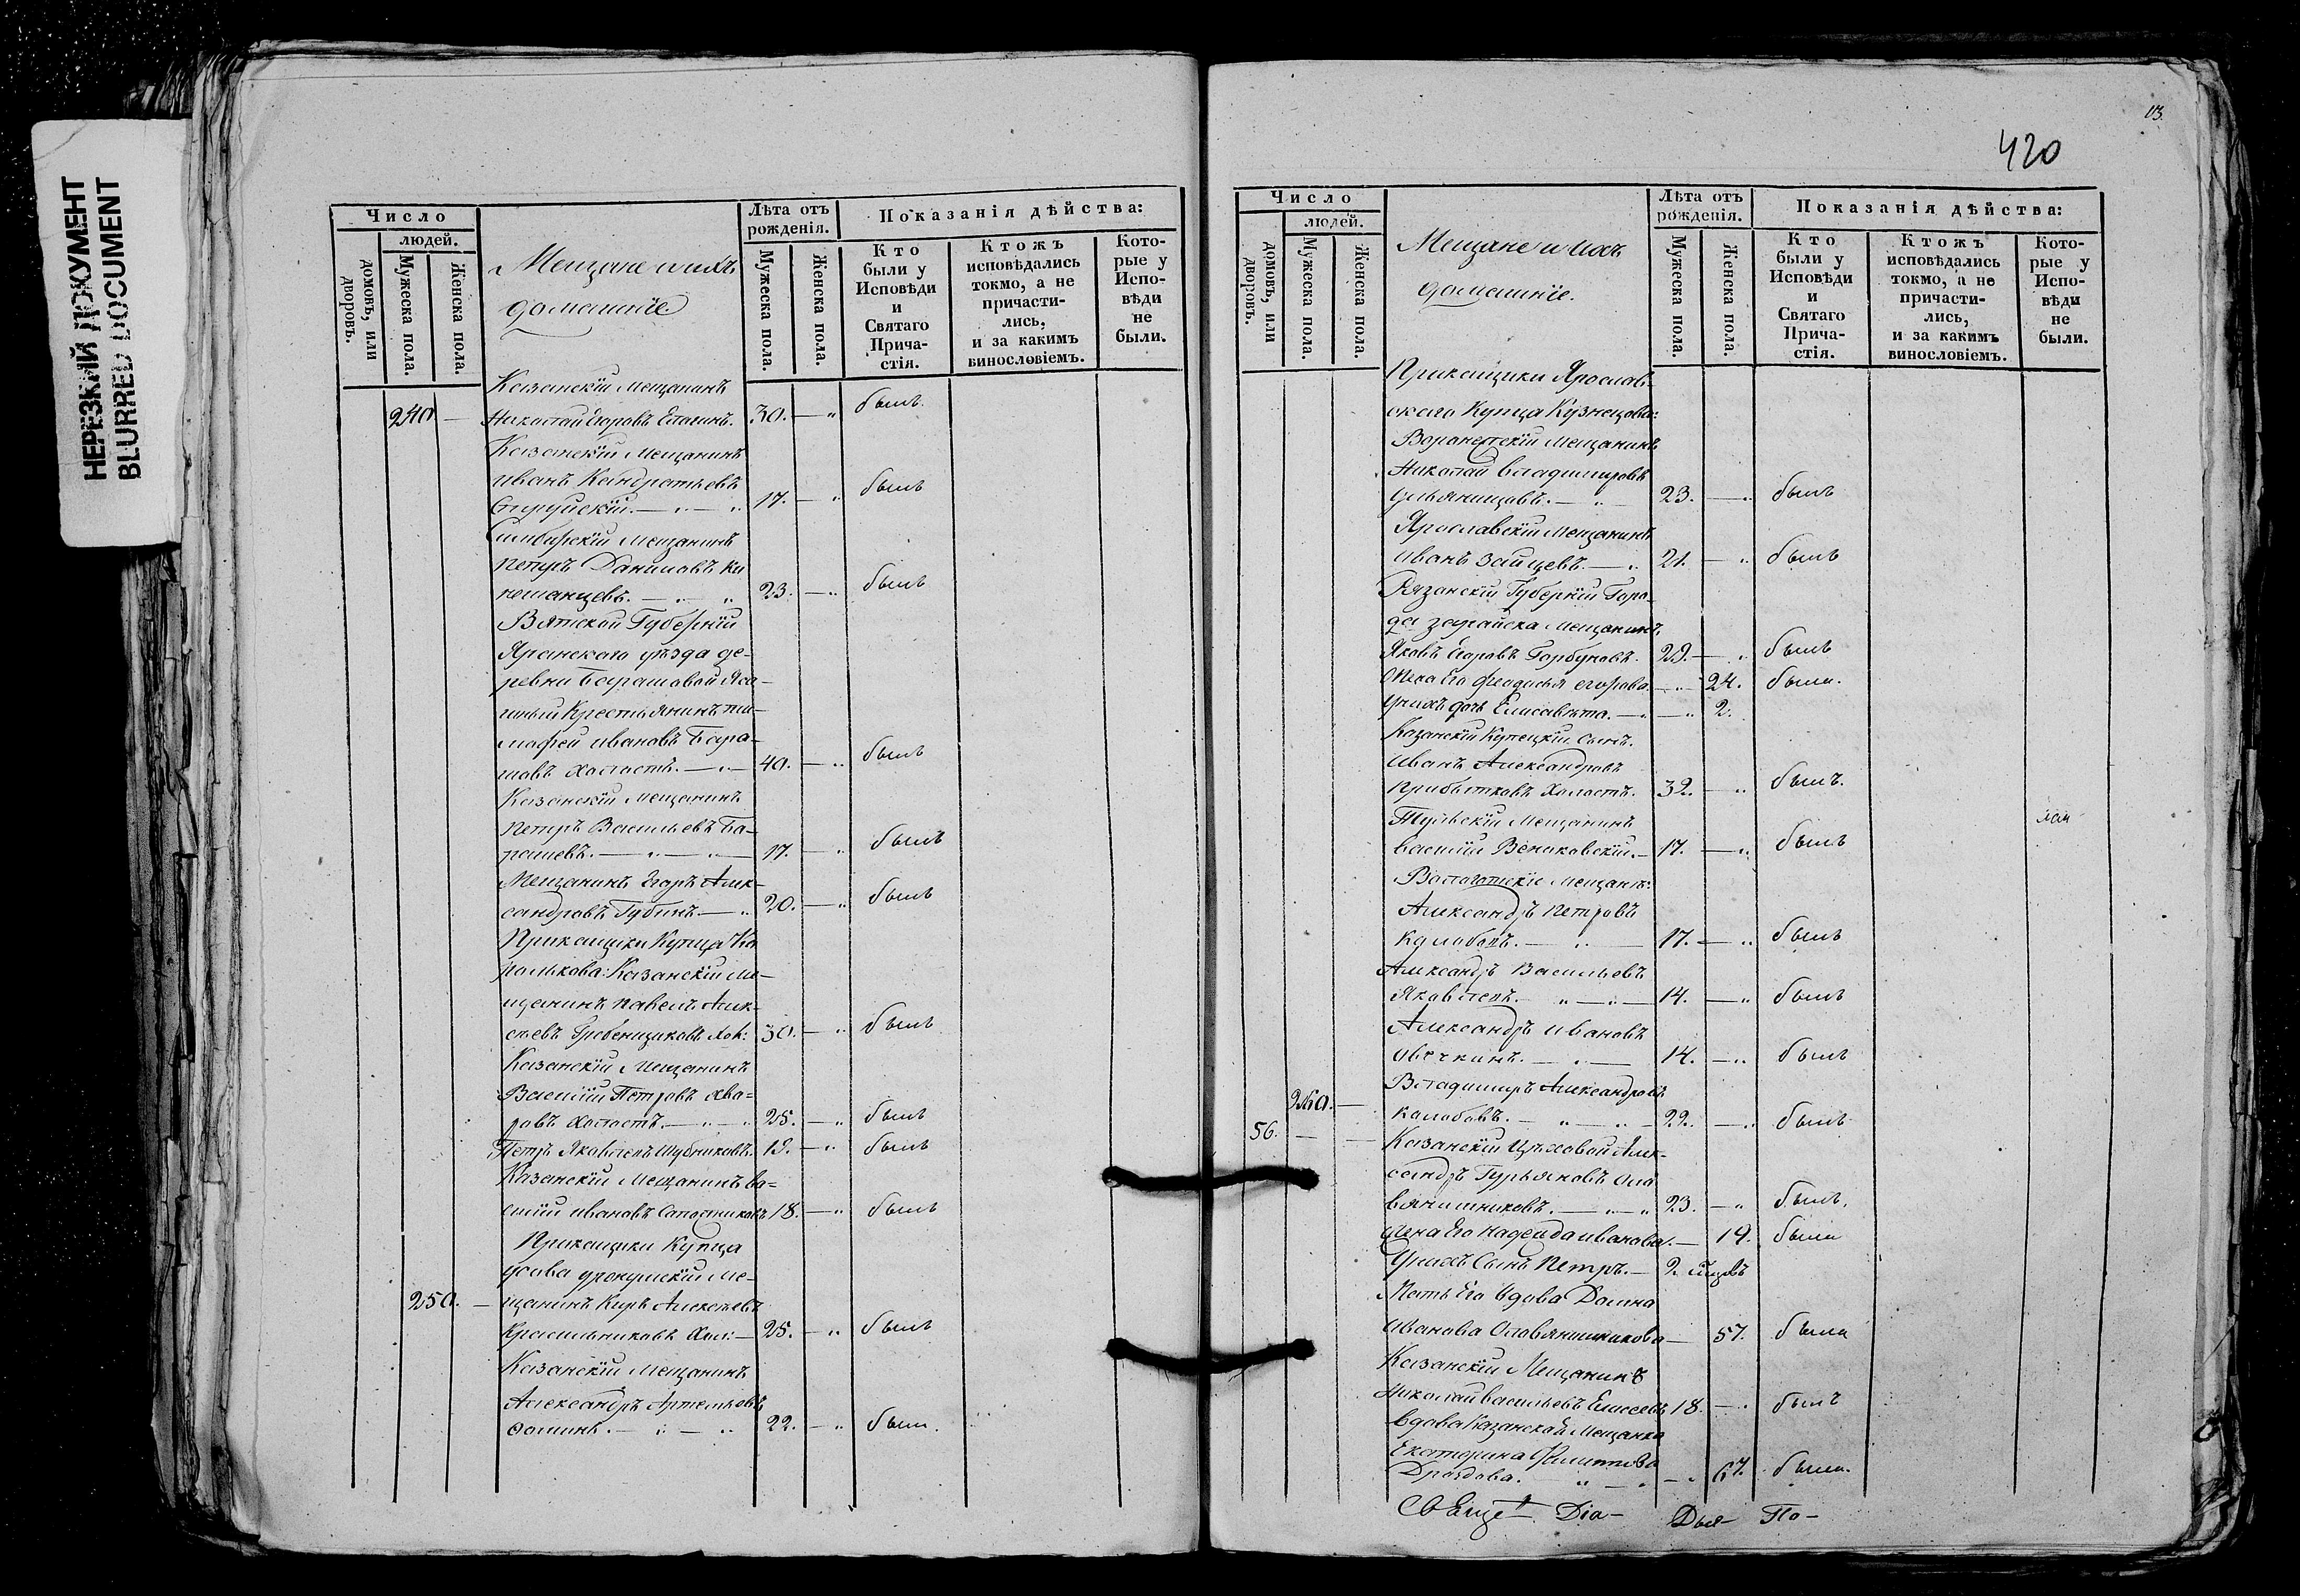 НЕРЕЗКИЙ ДОКУМЕНТ
BLURRED DOCUMENT
Число
людей.
домовъ, или дворовъ.
Мужеска пола.
Женска пола.
Мещане и ихъ
домашнїе
Лѣта отъ рожденія.
Мужеска пола.
Женска пола.
Показанія дѣйства:
Кто были у Исповѣди и Святаго Причастія.
Ктожъ исповѣдались токмо, а не причастились, и за какимъ винословіемъ.
Которые у Исповѣди не были.
Казанскїй Мещанинъ
240 — Николай Егоровъ 30. — " былъ
Казанскїй Мещанинъ
иванъ Кандратьевъ
17. — " былъ
Симбирскїй Мещанинъ
Петръ Даниловъ Ки
нешанцевъ. — " — " 23. — " былъ
Вятской Губернїи
Яранского уѣзда де-
ревни Барашовой Яса-
шный Крестьянинъ ти-
мофей ивановъ Бара-
шовъ холостъ. — " — 40. — " былъ
Казанскїй Мещанинъ
Петръ Васильевъ Ба-
рашевъ. — " — " — 17. — " былъ
Мещанинъ Егоръ Алек-
сандровъ Губинъ. — " 20. — " былъ
Прикащики Купца Ка
ралькова: Казанскїй Ме-
щанинъ Павелъ Алек-
сѣевъ Гребенщиковъ Хол: 30. — " былъ
Казанскїй Мещанинъ
Василїй Петровъ Хва-
ровъ холостъ. — " — " 25. — " былъ
Петръ Яковлевъ Шубниковъ. 19. — " былъ
Казанскїй Мещанинъ ва-
силїй ивановъ Сапожниковъ 18. — " былъ
Прикащики Купца
усова уржумскїй Ме-
250. — щанинъ Киръ Алексѣевъ
Красильниковъ Хол: — 25. — " былъ
Казанскїй Мещанинъ
Александръ Артемьевъ
Фоминъ. — " — " 22. — " былъ
13.
420
Число
людей.
домовъ, или дворовъ.
Мужеска пола.
Женска пола.
Мещане и ихъ
домашнїе.
Лѣта отъ рожденія.
Мужеска пола.
Женска пола.
Показанія дѣйства:
Кто были у Исповѣди и Святаго Причастія.
Ктожъ исповѣдались токмо, а не причастились, и за какимъ винословіемъ.
Которые у Исповѣди не были.
Прикащики Ярослав-
скаго Купца Кузнецова:
Воронежскїй Мещанинъ
Николай владимировъ
ульянищевъ. — " 23. — " былъ
Ярославскїй Мещанинъ
иванъ зайцевъ. — " 21. — " былъ
Рязанскїй Губернїи Горо-
да зарайска Мещанинъ
Яковъ Егоровъ Горбуновъ. 29. — " былъ
Жена Его Феодосья егорова. — " 24. была.
у нихъ дочь Елисавѣта. — " — " 2.
Казанскїй Купецкїй сынъ.
иванъ Александровъ
Прибытковъ холостъ. 32. — " былъ.
Тульскїй Мещанинъ
василїй Вениковскїй. — 17. — " былъ
Вологотскїе Мещане:
Александръ Петровъ
Колобовъ. — " — 17. — " былъ
Александръ Васильевъ
Яковлевъ. — " — " — 14. — " былъ
Александръ ивановъ
Овечкинъ. — " — 14. — " былъ
Владимиръ Александровъ
260. — Колобовъ. — " — " — 22. — " былъ
56. — — Казанскїй Цѣховой Алек-
сандръ Гурьяновъ Ола
вянишниковъ. — " — " 23. — " былъ.
Жена Его Надежда иванова. — 19. была
у нихъ Сынъ Петръ. — 2. мѣсяцовъ
Мать Его вдова Домна
иванова Олавянишникова — 57. была
Казанскїй Мещанинъ
Николай васильевъ Елисеевъ 18. — " былъ
вдова Казанская Мещанка
Екатерина Филиппова
Дроздова. " — " — " 67. была.
Дїа- Дья- По-